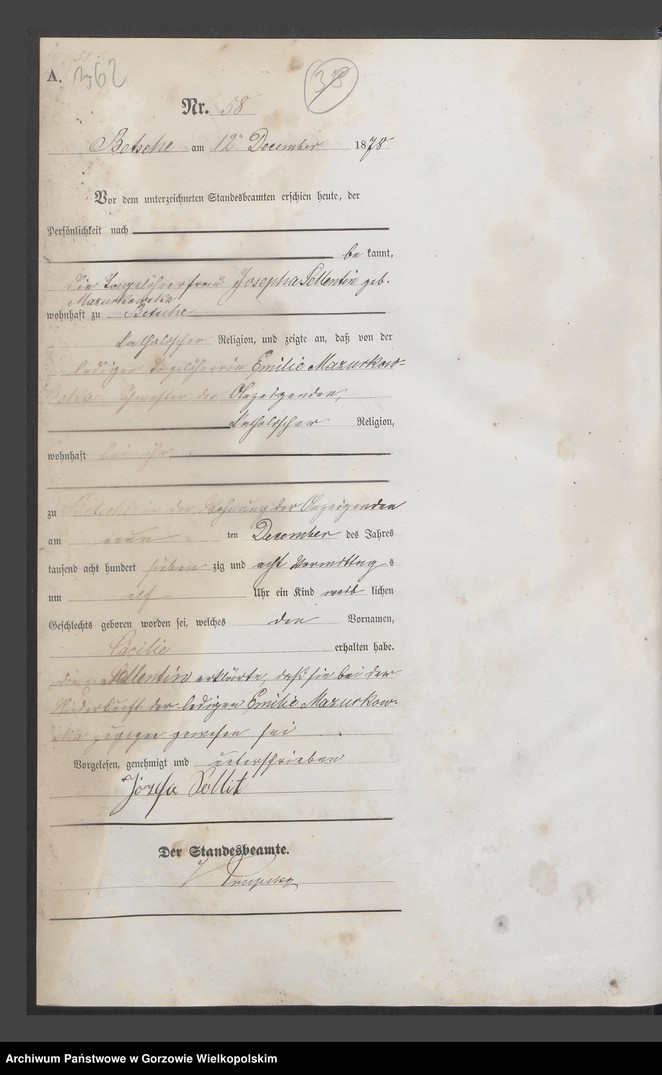 A. 362
Nr. 58
Betsche am 12ten December 1878
Vor dem unterzeichneten Standesbeamten erschien heute, der
Persönlichkeit nach
be kannt,
die Josepha Pellentin geb.
Mazurkowska
wohnhaft zu Betsche
katholischer Religion, und zeigte an, daß von der
ledigen Emilie Mazurkow=
ska Schwester der Anzeigenden,
katholischer Religion,
wohnhaft bei ihr
zu Betsche in der Wohnung der Anzeigenden
am neun ten December des Jahres
tausend acht hundert sieben zig und acht Vormittag s
um elf Uhr ein Kind weib lichen
Geschlechts geboren worden sei, welches den Vornamen,
Cäcilie erhalten habe.
die Pellentin erklärte, daß sie bei der
Niederkunft der ledigen Emilie Mazurkow-
ska zugegen gewesen sei
Vorgelesen, genehmigt und unterschrieben
Józefa
Der Standesbeamte.
Archiwum Państwowe w Gorzowie Wielkopolskim